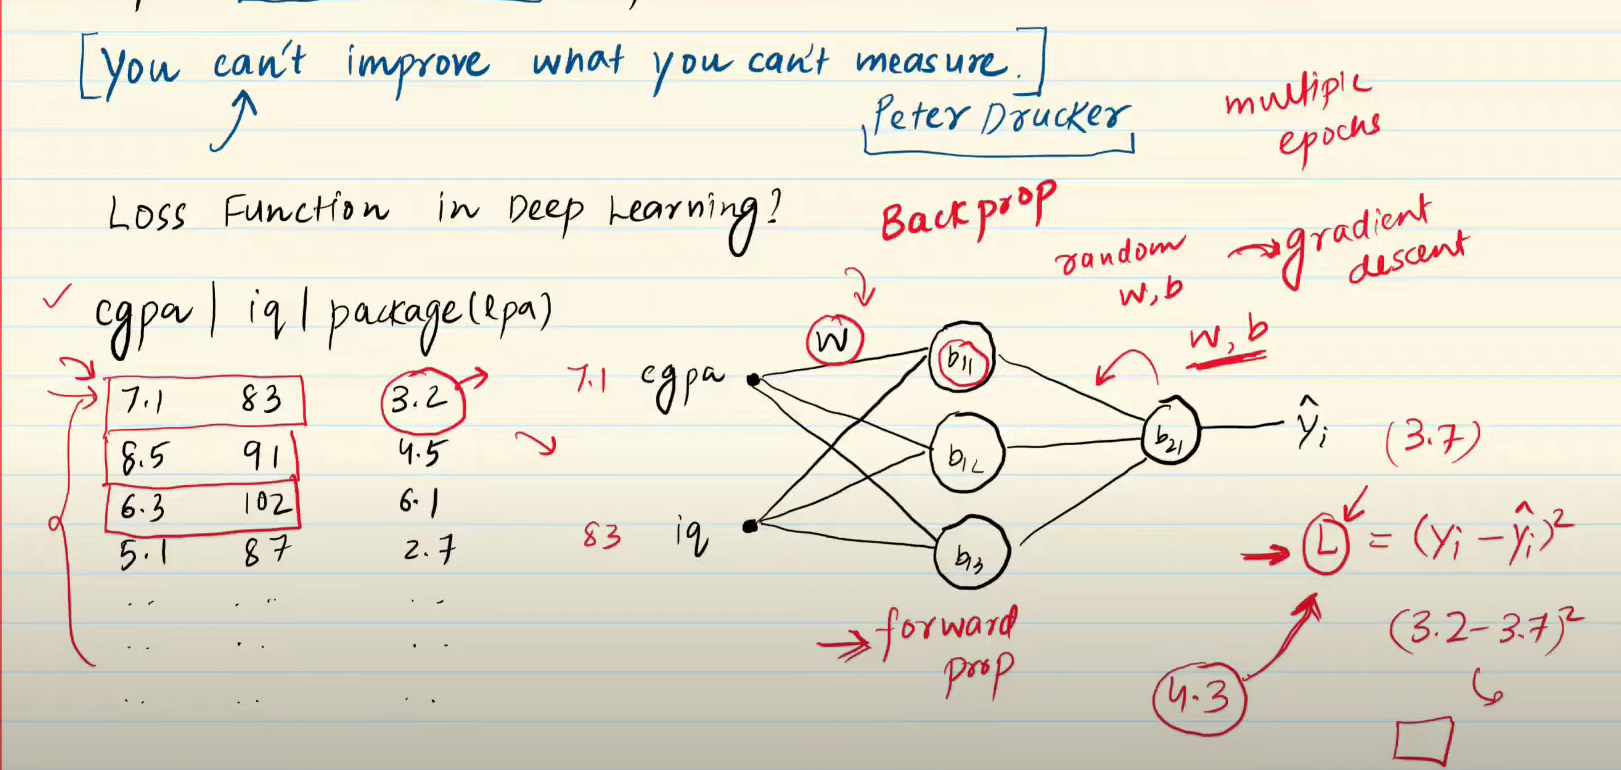 [You can't improve what you can't measure.]
Peter Drucker
multiple
epochs
Loss Function in Deep Learning?
Backprop
random
w, b
→ gradient
descent
w, b
✓ cgpa | iq | package(lpa)
7.1 83 3.2
8.5 91 4.5
6.3 102 6.1
5.1 87 2.7
.. .. ..
.. .. ..
.. .. ..
W
7.1 cgpa
83 iq
b11
b12
b13
b21
ŷi (3.7)
L = (yi - ŷi)²
(3.2-3.7)²
4.3
→ forward
prop